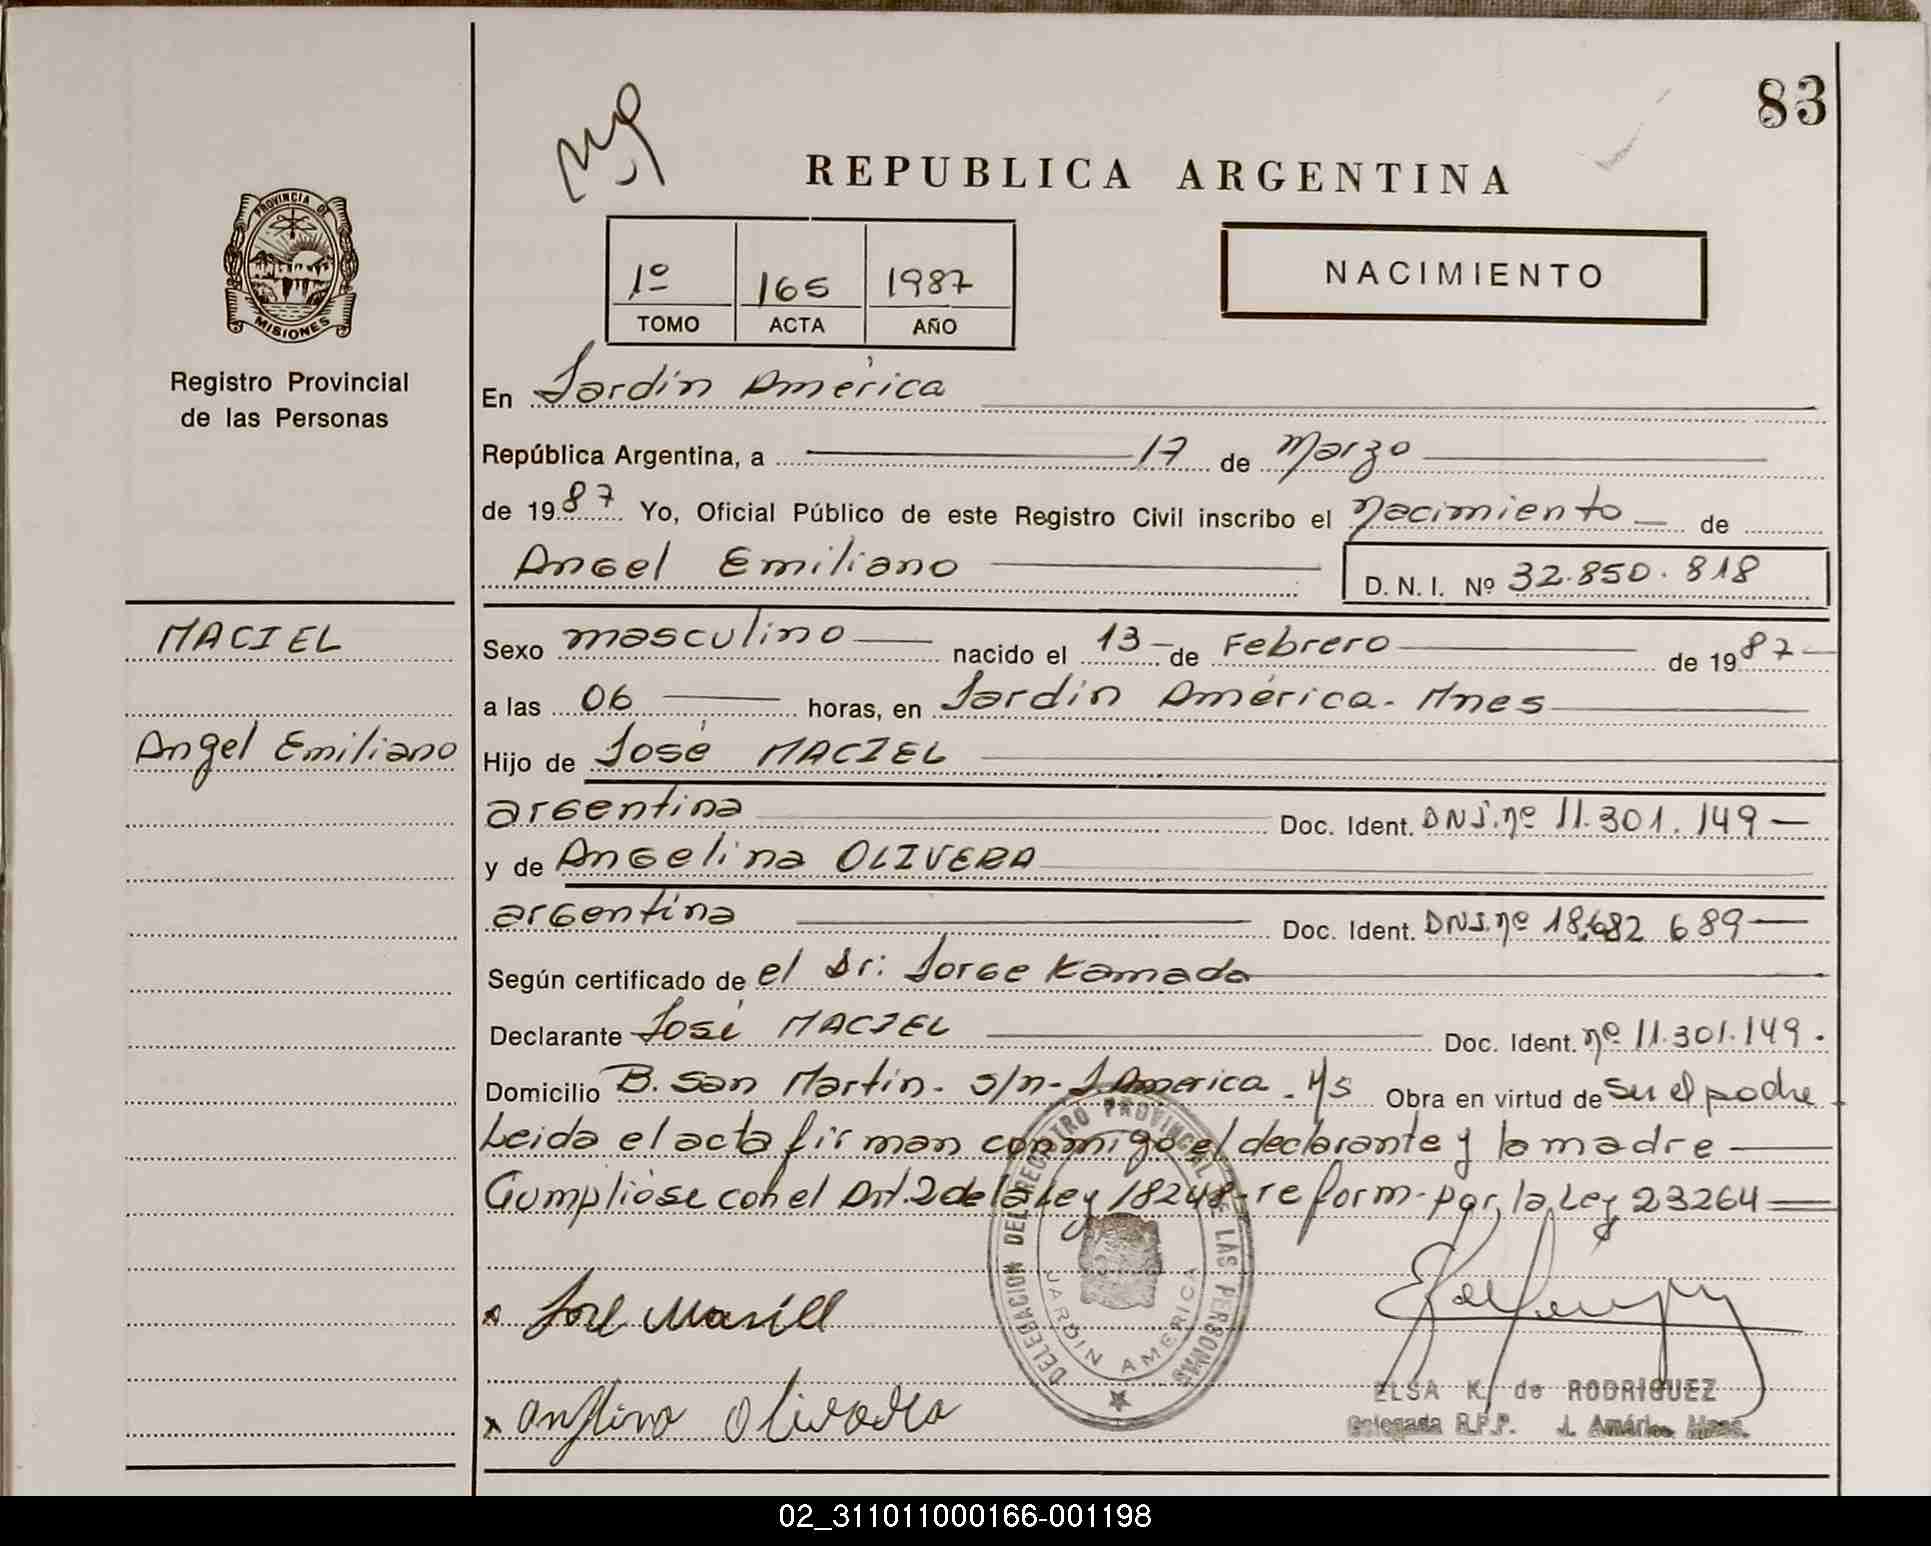 83
REPUBLICA ARGENTINA
PROVINCIA DE
MISIONES
Registro Provincial
de las Personas
1º 165 1987
TOMO ACTA AÑO
NACIMIENTO
En Jardín América
República Argentina, a 17 de Marzo
de 1987 Yo, Oficial Público de este Registro Civil inscribo el Nacimiento de
Angel Emiliano D. N. I. Nº 32.850.818
MACIEL
Angel Emiliano
Sexo masculino nacido el 13 de Febrero de 1987
a las 06 horas, en Jardín América - Mnes
Hijo de José MACIEL
argentina Doc. Ident. DNI. nº 11.301.149
y de Angelina OLIVERA
argentina Doc. Ident. DNI. nº 18.682 689
Según certificado de el Dr: Jorge Kamada
Declarante José MACIEL Doc. Ident. nº 11.301.149.
Domicilio B. San Martín - s/n - J. América - M/s Obra en virtud de su el padre
Leida el acta firman conmigo el declarante y la madre
Cumplióse con el Art. 2 de la Ley 18248 - reform - por la Ley 23264
DELEGACION DEL REGISTRO PROVINCIAL DE LAS PERSONAS
JARDIN AMERICA
ELSA K. de RODRIGUEZ
Delegada R.P.P. J. América Mnes.
02_311011000166-001198